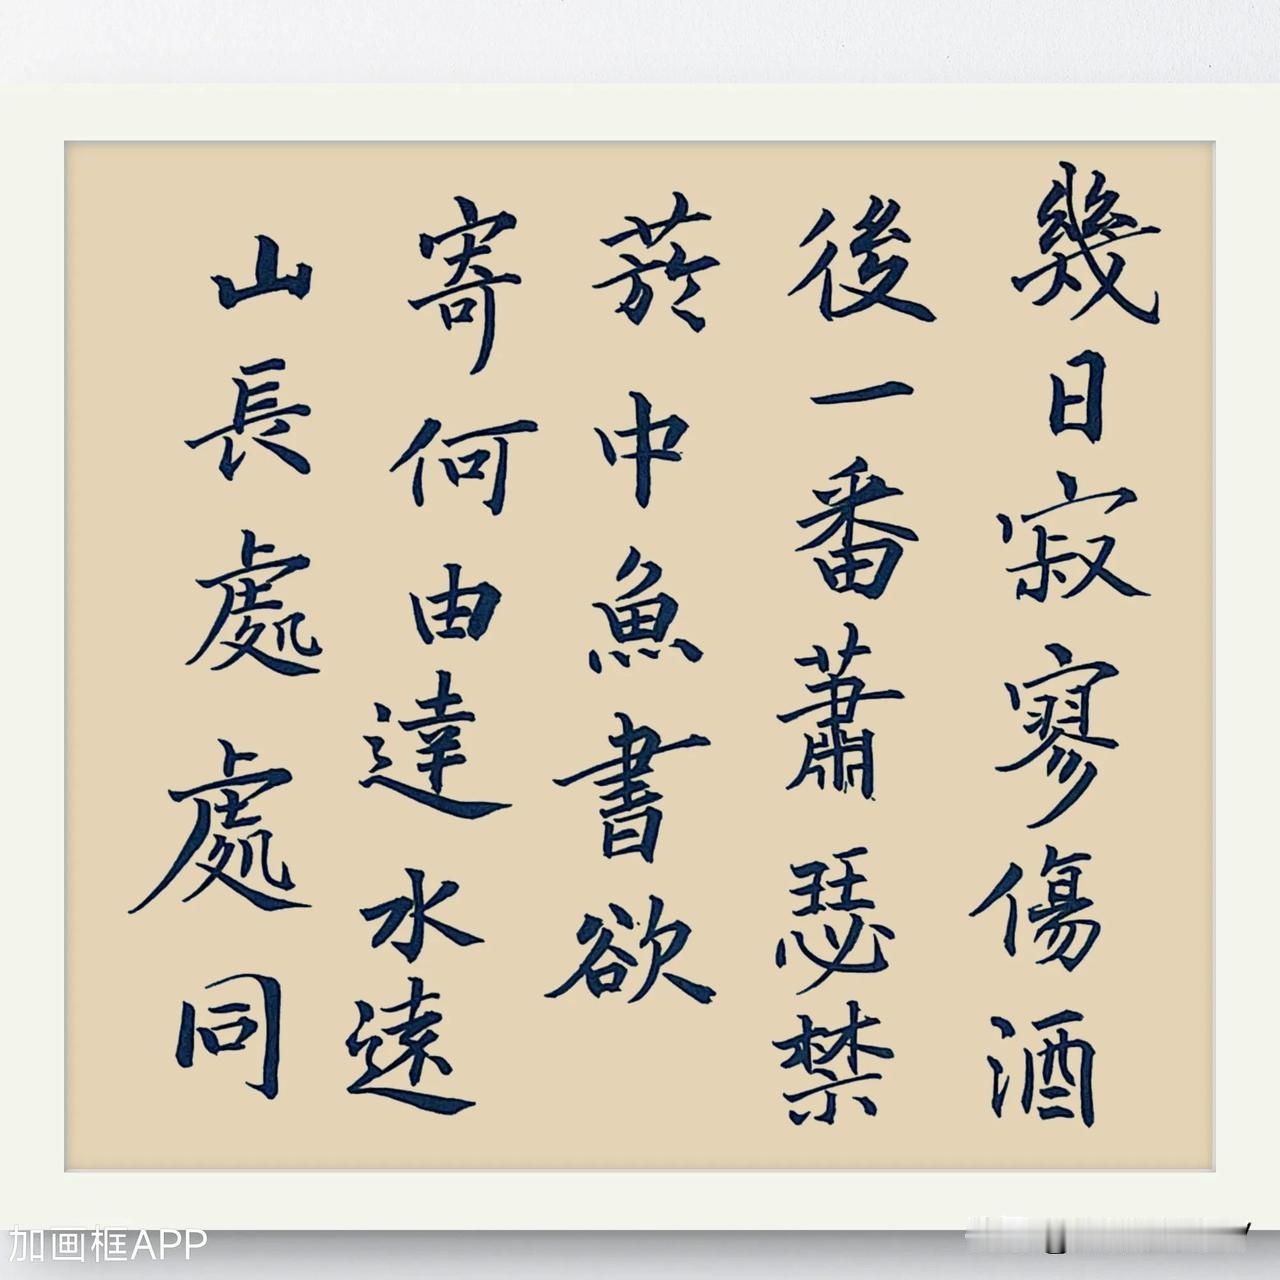 幾日寂寥傷酒
後一番蕭瑟禁
菸中魚書欲
寄何由達水遠
山長處處同
加画框APP